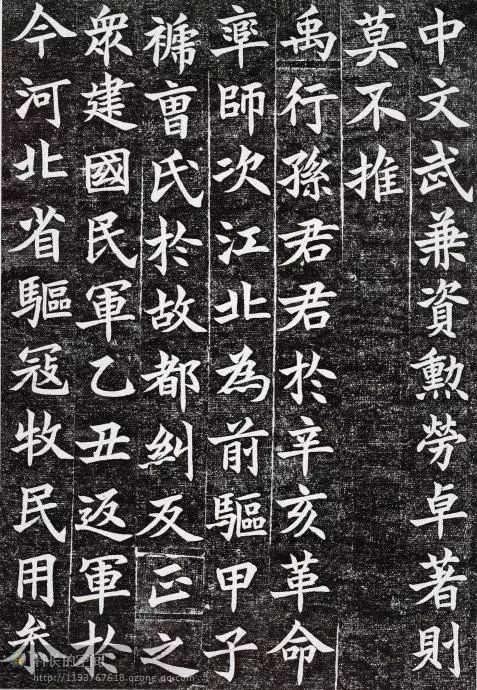 中文武兼資勳勞卓著則
莫不推
禹行孫君君於辛亥革命
率師次江北為前驅甲子
褫曹氏於故都糾反正之
眾建國民軍乙丑返軍於
今河北省驅寇牧民用參
http://1193767618.qzone.qq.com